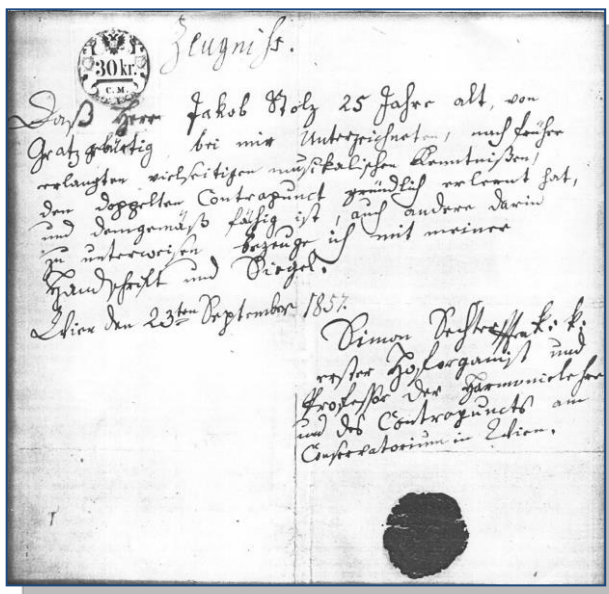 Zeugniß.
30 kr.
C. M.
Daß Herr Jakob Stolz 25 Jahre alt, von
Gratz gebürtig, bei mir Unterzeichneten, nach früher
erlangten vielseitigen musikalischen Kenntnißen,
den doppelten Contrapunct gründlich erlernt hat,
und demgemäß fähig ist, auch andere darin
zu unterweisen bezeuge ich mit meiner
Handschrift und Siegel.
Wien den 23ten September 1857.
Simon Sechter k. k.
erster Hoforganist und
Professor der Harmonielehre
und des Contrapuncts am
Conservatorium in Wien.